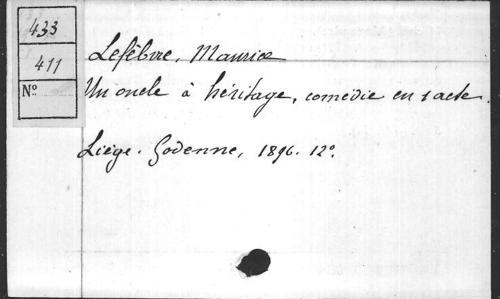 433
411
No
Lefèbvre, Maurice
Un oncle à héritage, comédie en 1 acte.
Liège. Godenne, 1896. 12o.